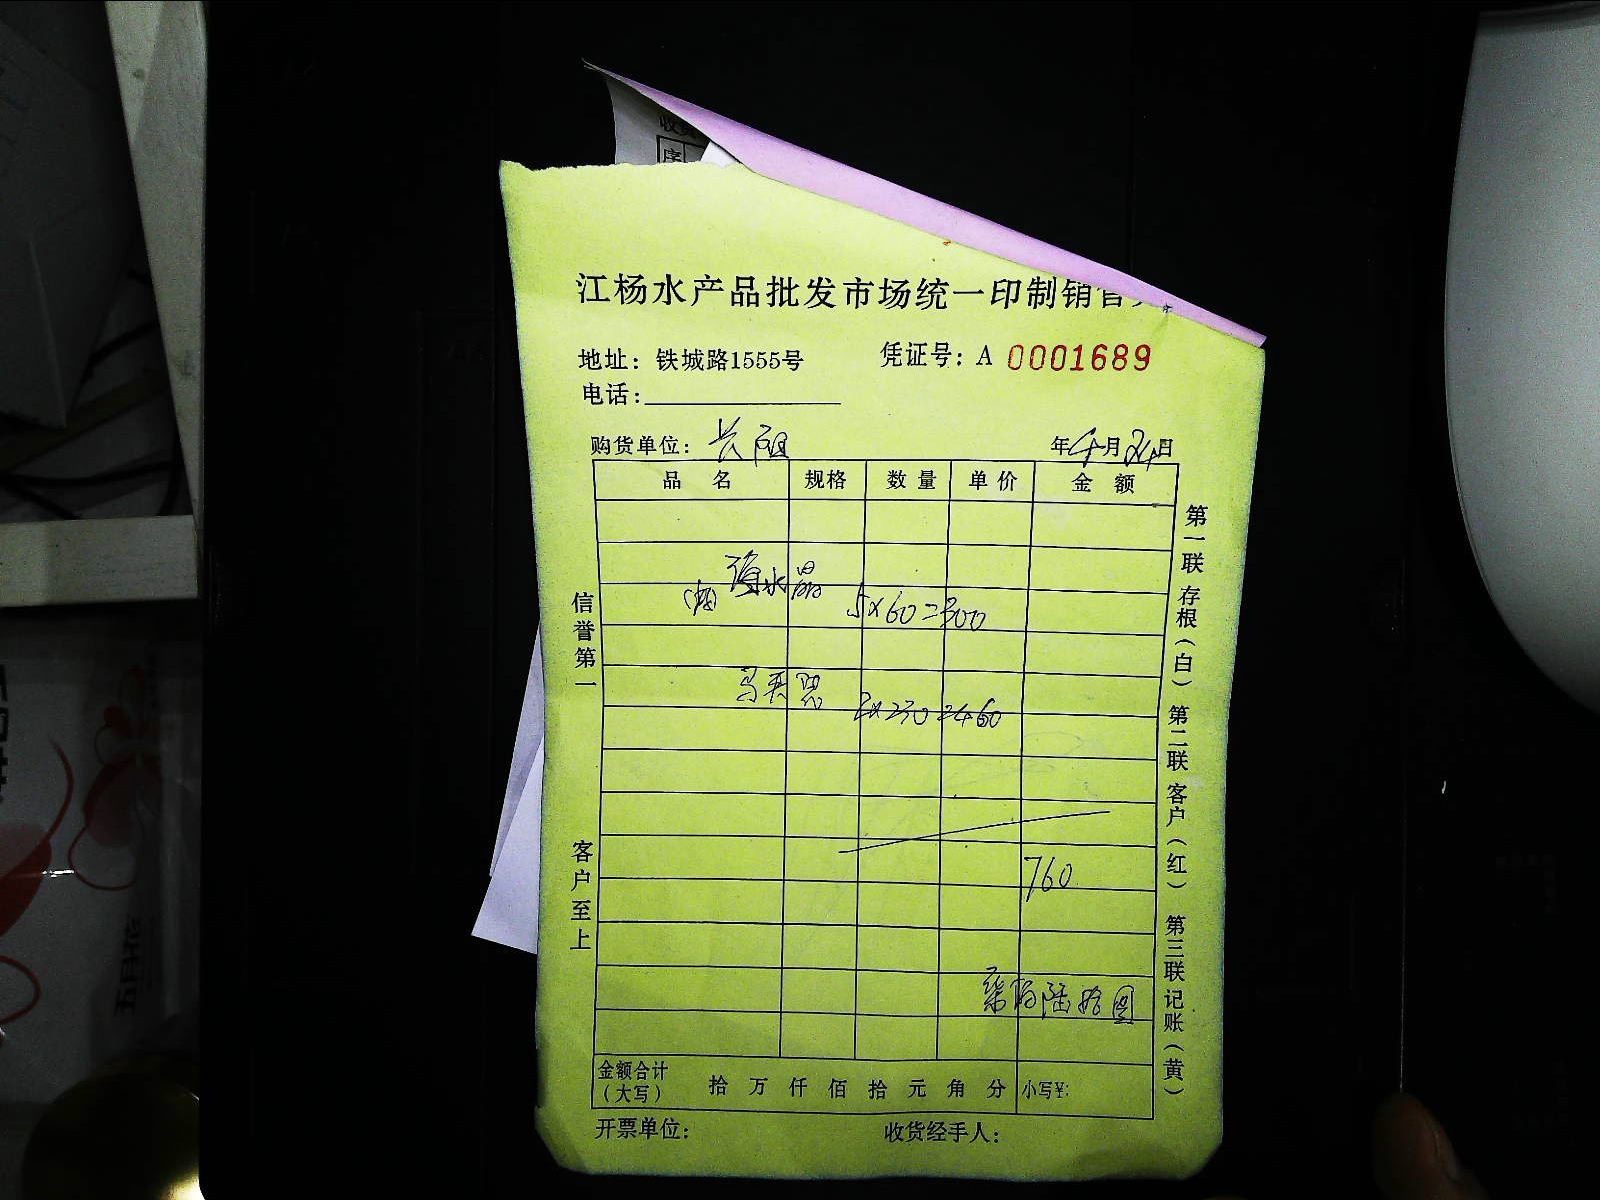 收货
序
江杨水产品批发市场统一印制销售
地址：铁城路1555号 凭证号：A 0001689
电话：
购货单位：长阳 年4月24日
品名 规格 数量 单价 金额
海水晶
5×60=300
2×230=460
760
柒佰陆拾圆
金额合计（大写） 拾万仟佰拾元角分 小写¥:
开票单位： 收货经手人：
信誉第一 客户至上
第一联 存根（白） 第二联 客户（红） 第三联 记账（黄）
五月花